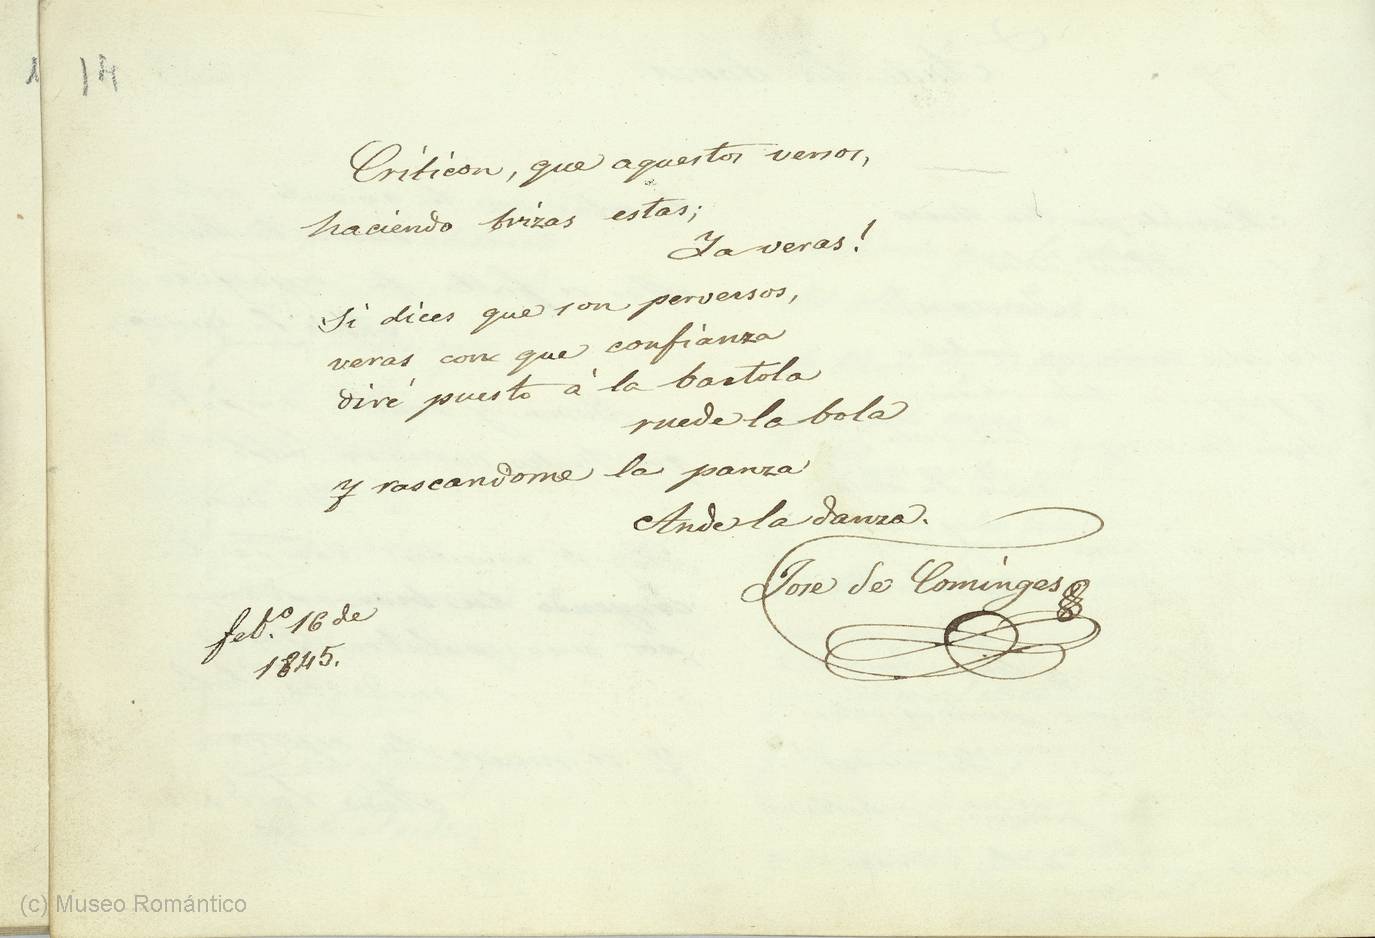 14
Criticon, que aquestos versos,
haciendo trizas estas;
Ya veras!
Si dices que son perversos,
veras con que confianza
diré puesto á la bartola
ruede la bola
Y rascandome la panza
Ande la danza.
Jose de Cominges
feb.º 16 de
1845.
(c) Museo Romántico